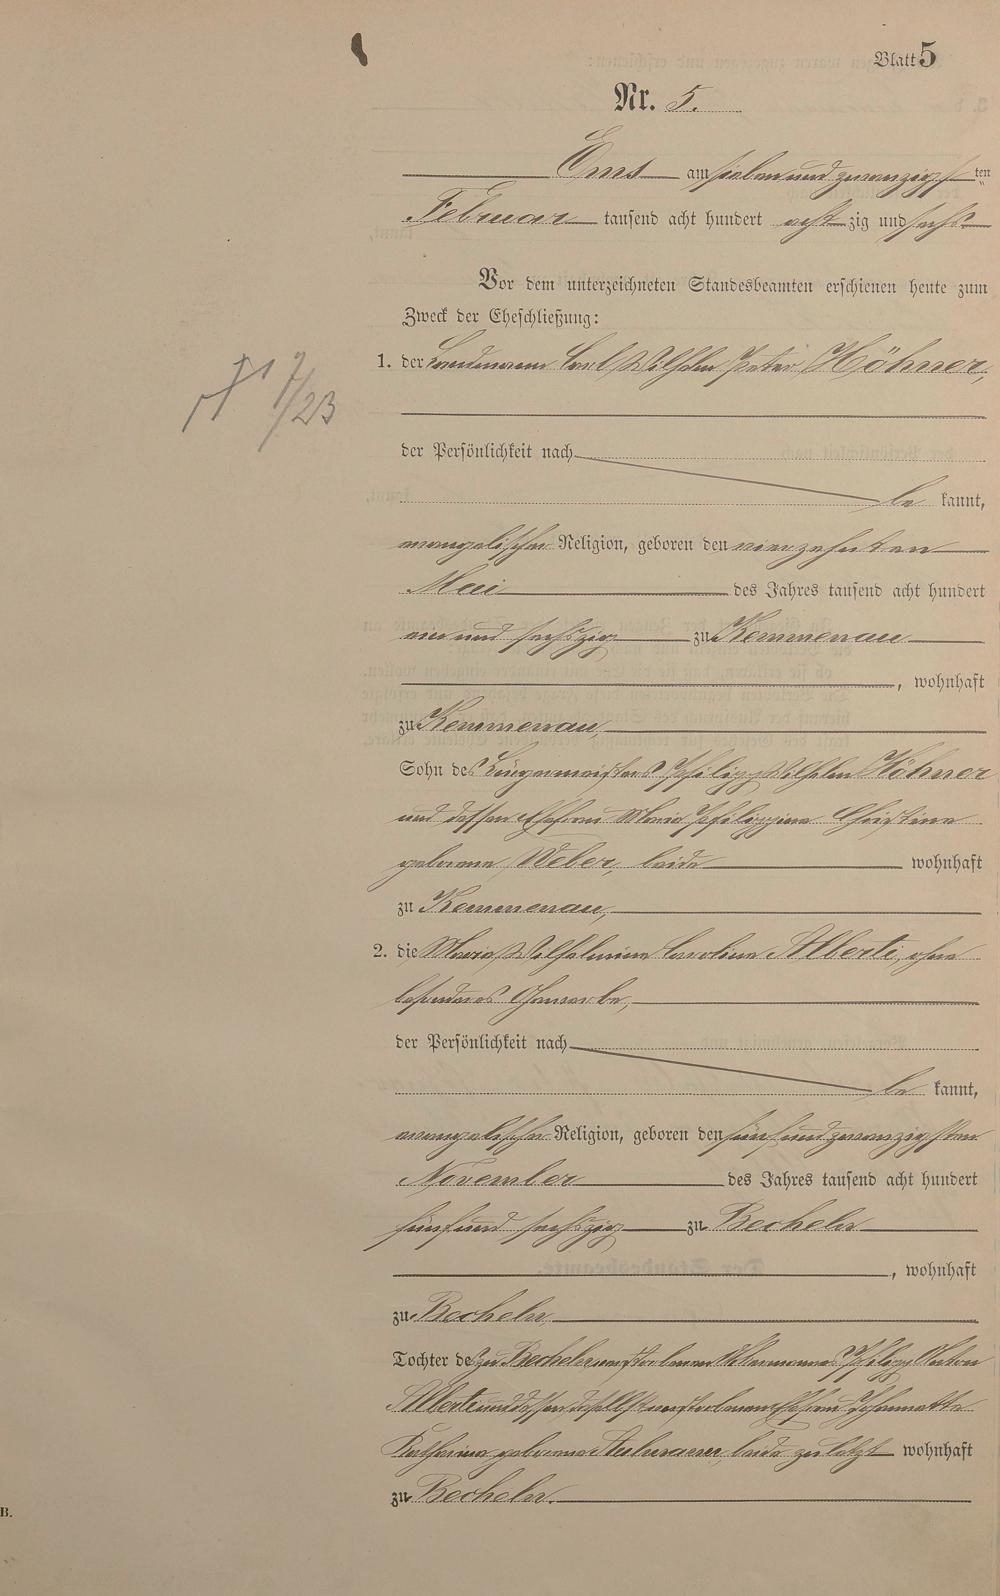 Blatt 5
Nr. 5.
Ems am sieben und zwanzigsten
Februar tausend acht hundert achtzig und sechs
Vor dem unterzeichneten Standesbeamten erschienen heute zum
Zweck der Eheschließung:
1. der Landmann Carl Wilhelm Peter Höhner,
7/23
der Persönlichkeit nach
be kannt,
evangelischer Religion, geboren den vierzehnten
Mai des Jahres tausend acht hundert
ein und sechszig zu Kemmenau
, wohnhaft
zu Kemmenau,
Sohn des Bürgermeisters Philipp Wilhelm Höhner
und dessen Ehefrau Maria Philippine Christine
geborene Weber, beide wohnhaft
zu Kemmenau,
2. die Maria Wilhelmine Caroline Alberti, ohne
besonderes Gewerbe,
der Persönlichkeit nach
be kannt,
evangelischer Religion, geboren den fünf und zwanzigsten
November des Jahres tausend acht hundert
fünf und sechszig zu Becheln
, wohnhaft
zu Becheln,
Tochter des zu Becheln verstorbenen Philipp Anton
Alberti und dessen daselbst verstorbenen Ehefrau Johannette
Katharina geborene beide zuletzt wohnhaft
zu Becheln.
B.